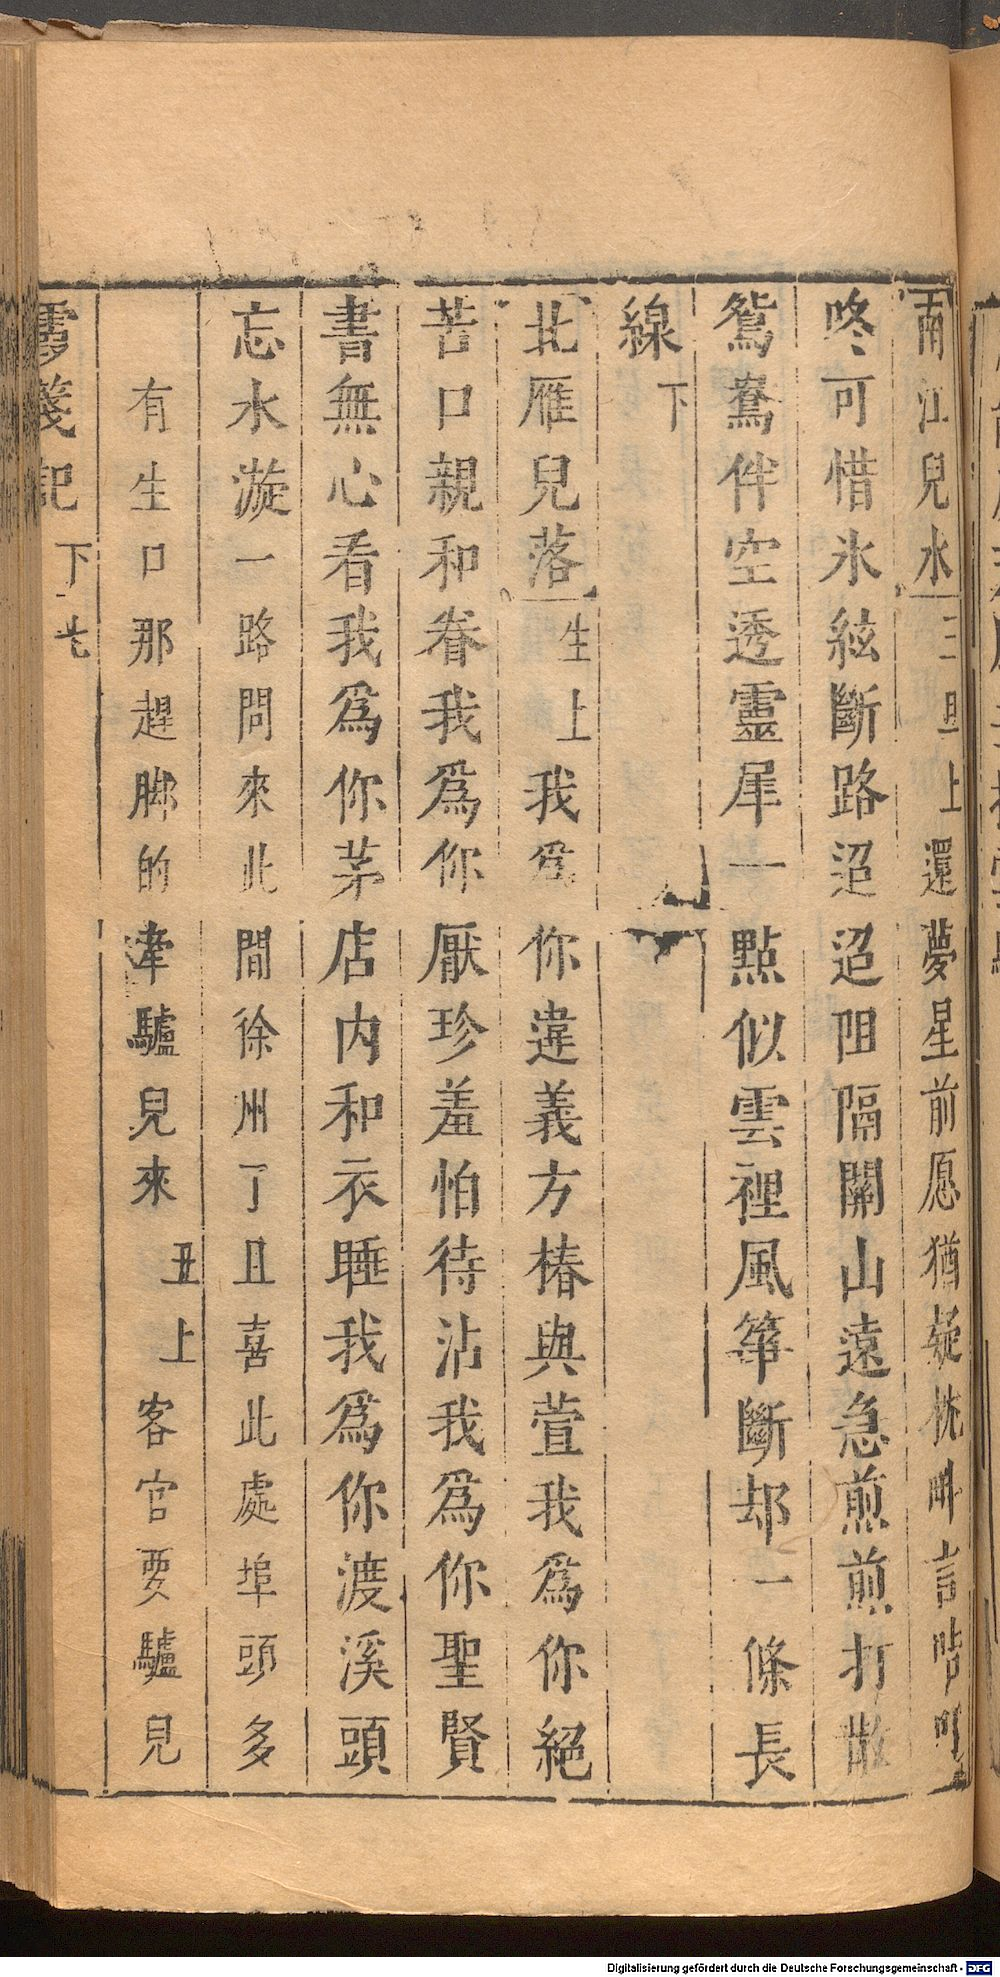 南江兒水三旦上還夢星前愿猶疑枕畔言啀
咚可惜氷絃斷路迢迢阻隔關山遠急煎煎打散
鴛鴦伴空透靈犀一點似雲裡風箏斷却一條長
線下
北雁兒落生上我為你違義方椿與萱我爲你絕
苦口親和眷我爲你厭珍羞怕待沾我爲你聖賢
書無心看我爲你茅店內和衣睡我爲你渡溪頭
忘水漩一路問來此間徐州了且喜此處埠頭多
有生口那趕脚的牽驢兒來丑上客官要驢兒
霞箋記下
Digitalisierung gefördert durch die Deutsche Forschungsgemeinschaft - DFG